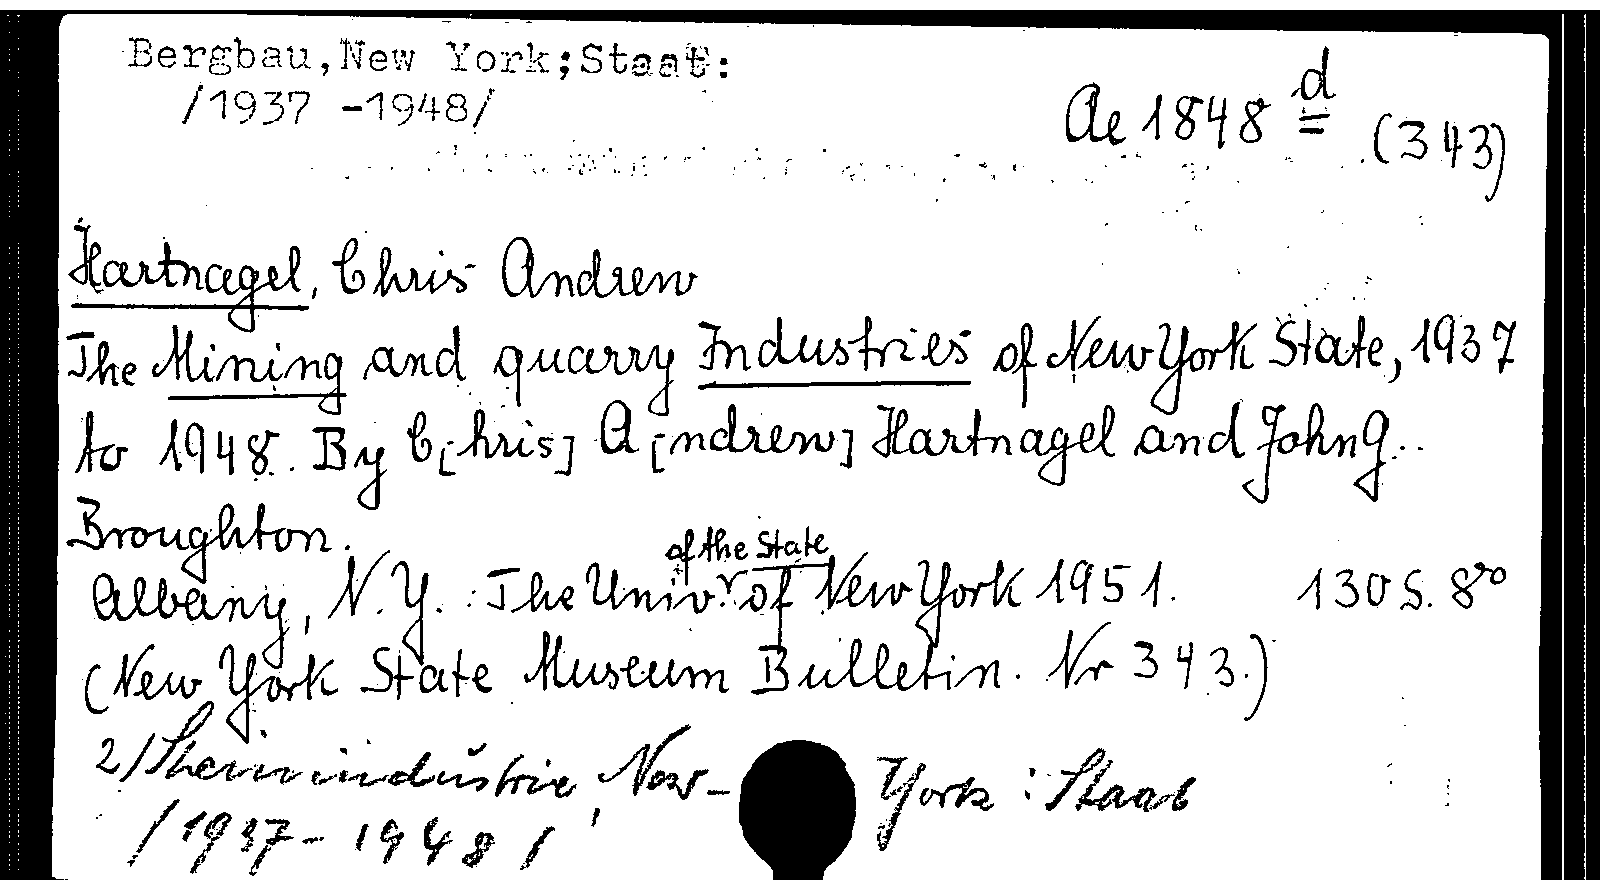 Bergbau,New York;Staat:
/1937 -1948/
Ae 1848 d (343)
Hartnagel, Chris Andrew
The Mining and quarry Industries of New York State, 1937
to 1948. By C[hris] A[ndrew] Hartnagel and John G..
Broughton.
of the State
Albany, N.Y.: The Univ. of New York 1951. 130 S. 8vo
(New York State Museum Bulletin. Nr 343.)
2/Steinindustrie, New-York : Staat
/1937-1948/